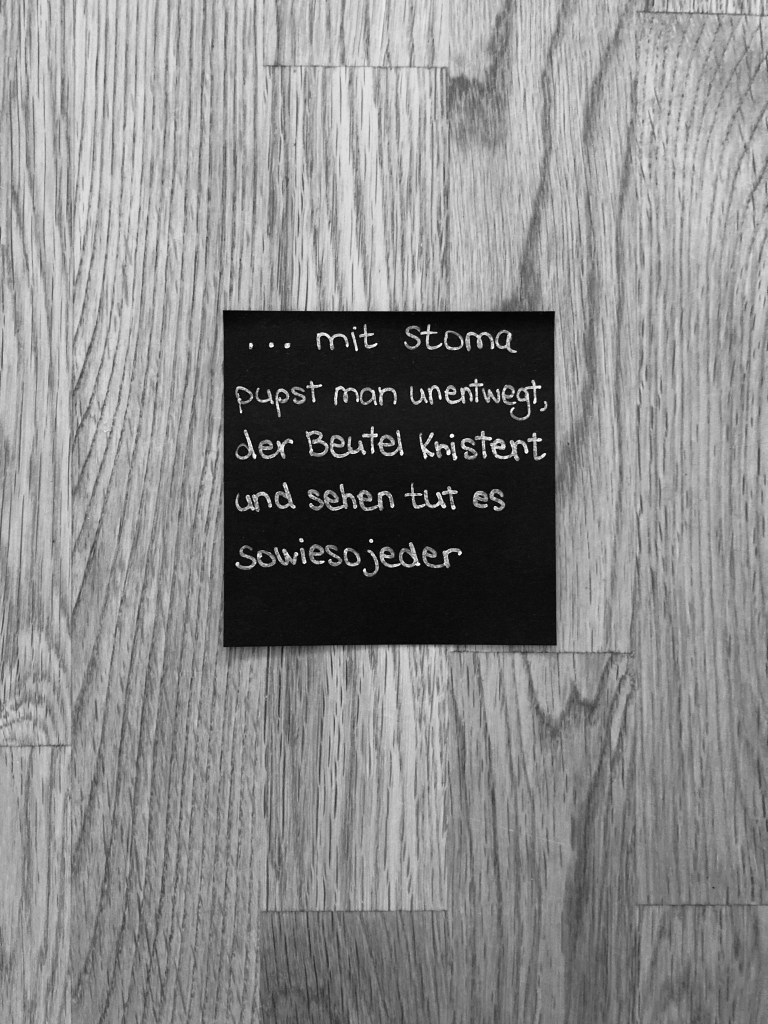 ... mit Stoma
pupst man unentwegt,
der Beutel Knistert
und sehen tut es
sowiesojeder